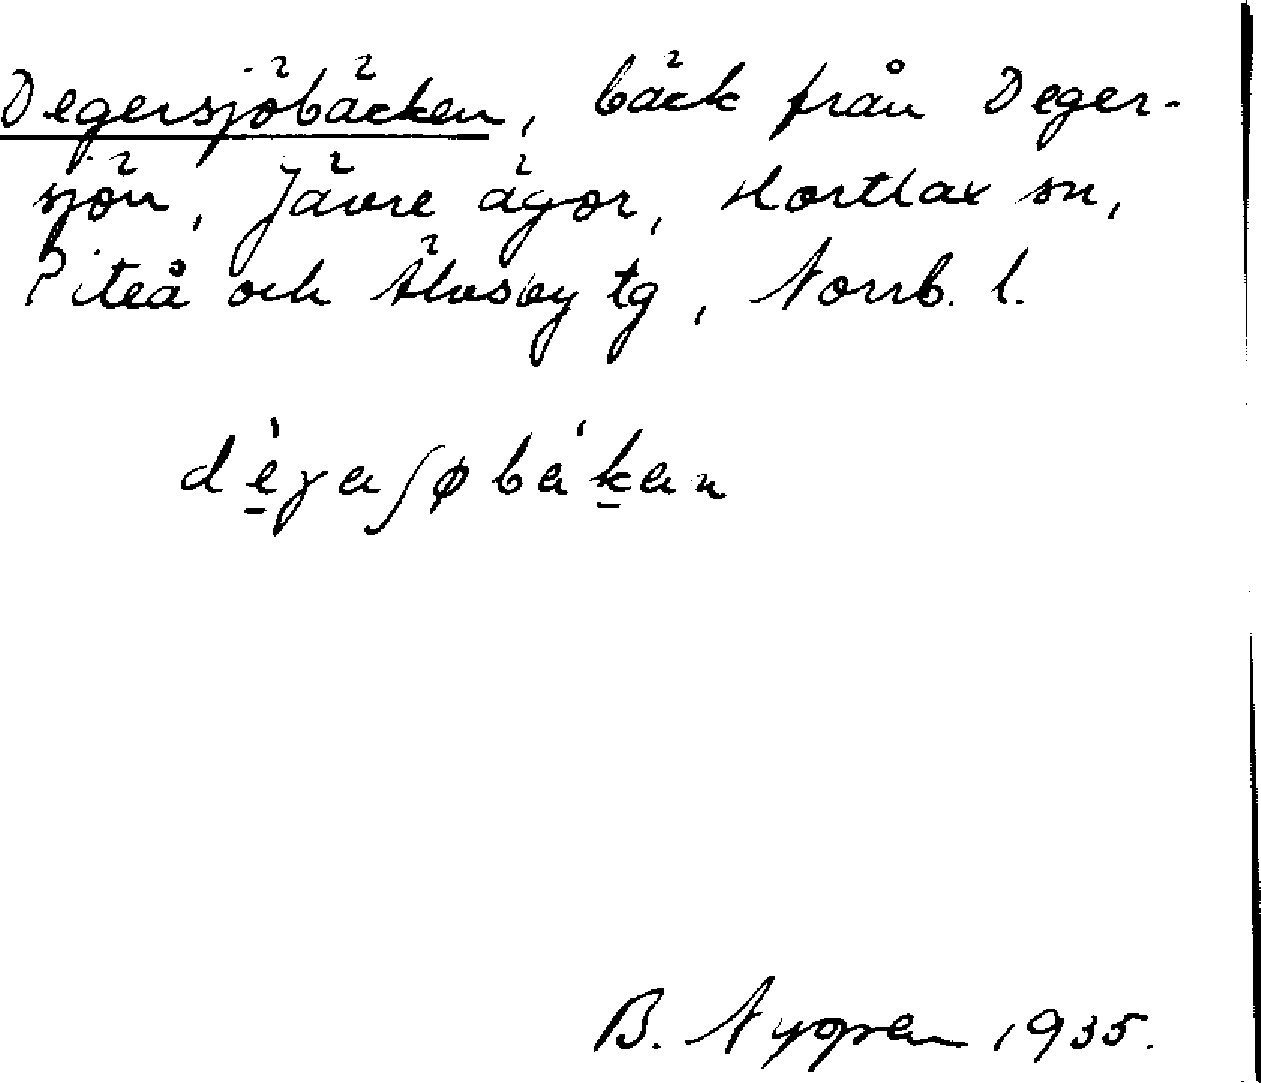 Degersjöbäcken, bäck från Deger-
sjön, Jävre ägor, Hortlax sn,
Piteå och Älvsby tg, Norrb. l.
B. Nygren 1935.